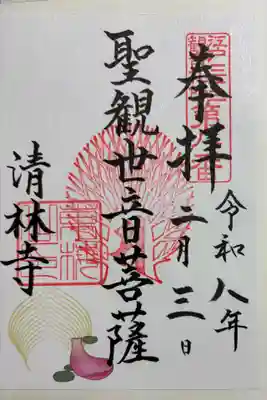 奉拝
令和八年
二月三日
聖観世音菩薩
清林寺